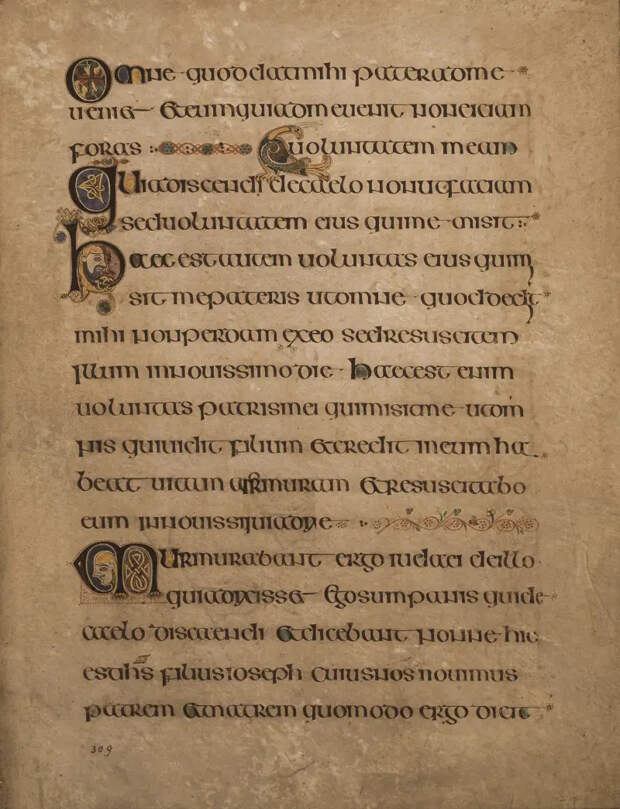 Omne quod dat mihi pater ad me
veniet Et eum qui ad me venit non eiciam
foras : voluntatem meam
Quia discendi de caelo non ut faciam
sed voluntatem eius qui me misit :
haec est autem voluntas eius qui m
sit me pateris ut omne quod dedit
mihi non perdam ex eo sed resuscitem
illum in novissimo die haec est enim
voluntas patris mei qui misit me ut om
nis qui vidit filium et credit in eum ha
beat vitam murmuram Et resuscitabo
eum in novissi die
Murmurabant ergo iudaei de illo
quia dixisset Ego sum panis qui de
caelo discendi Et dicebant nonne hic
est ihs filius ioseph cuius nos novimus
patrem et matrem quomodo ergo dicit
309